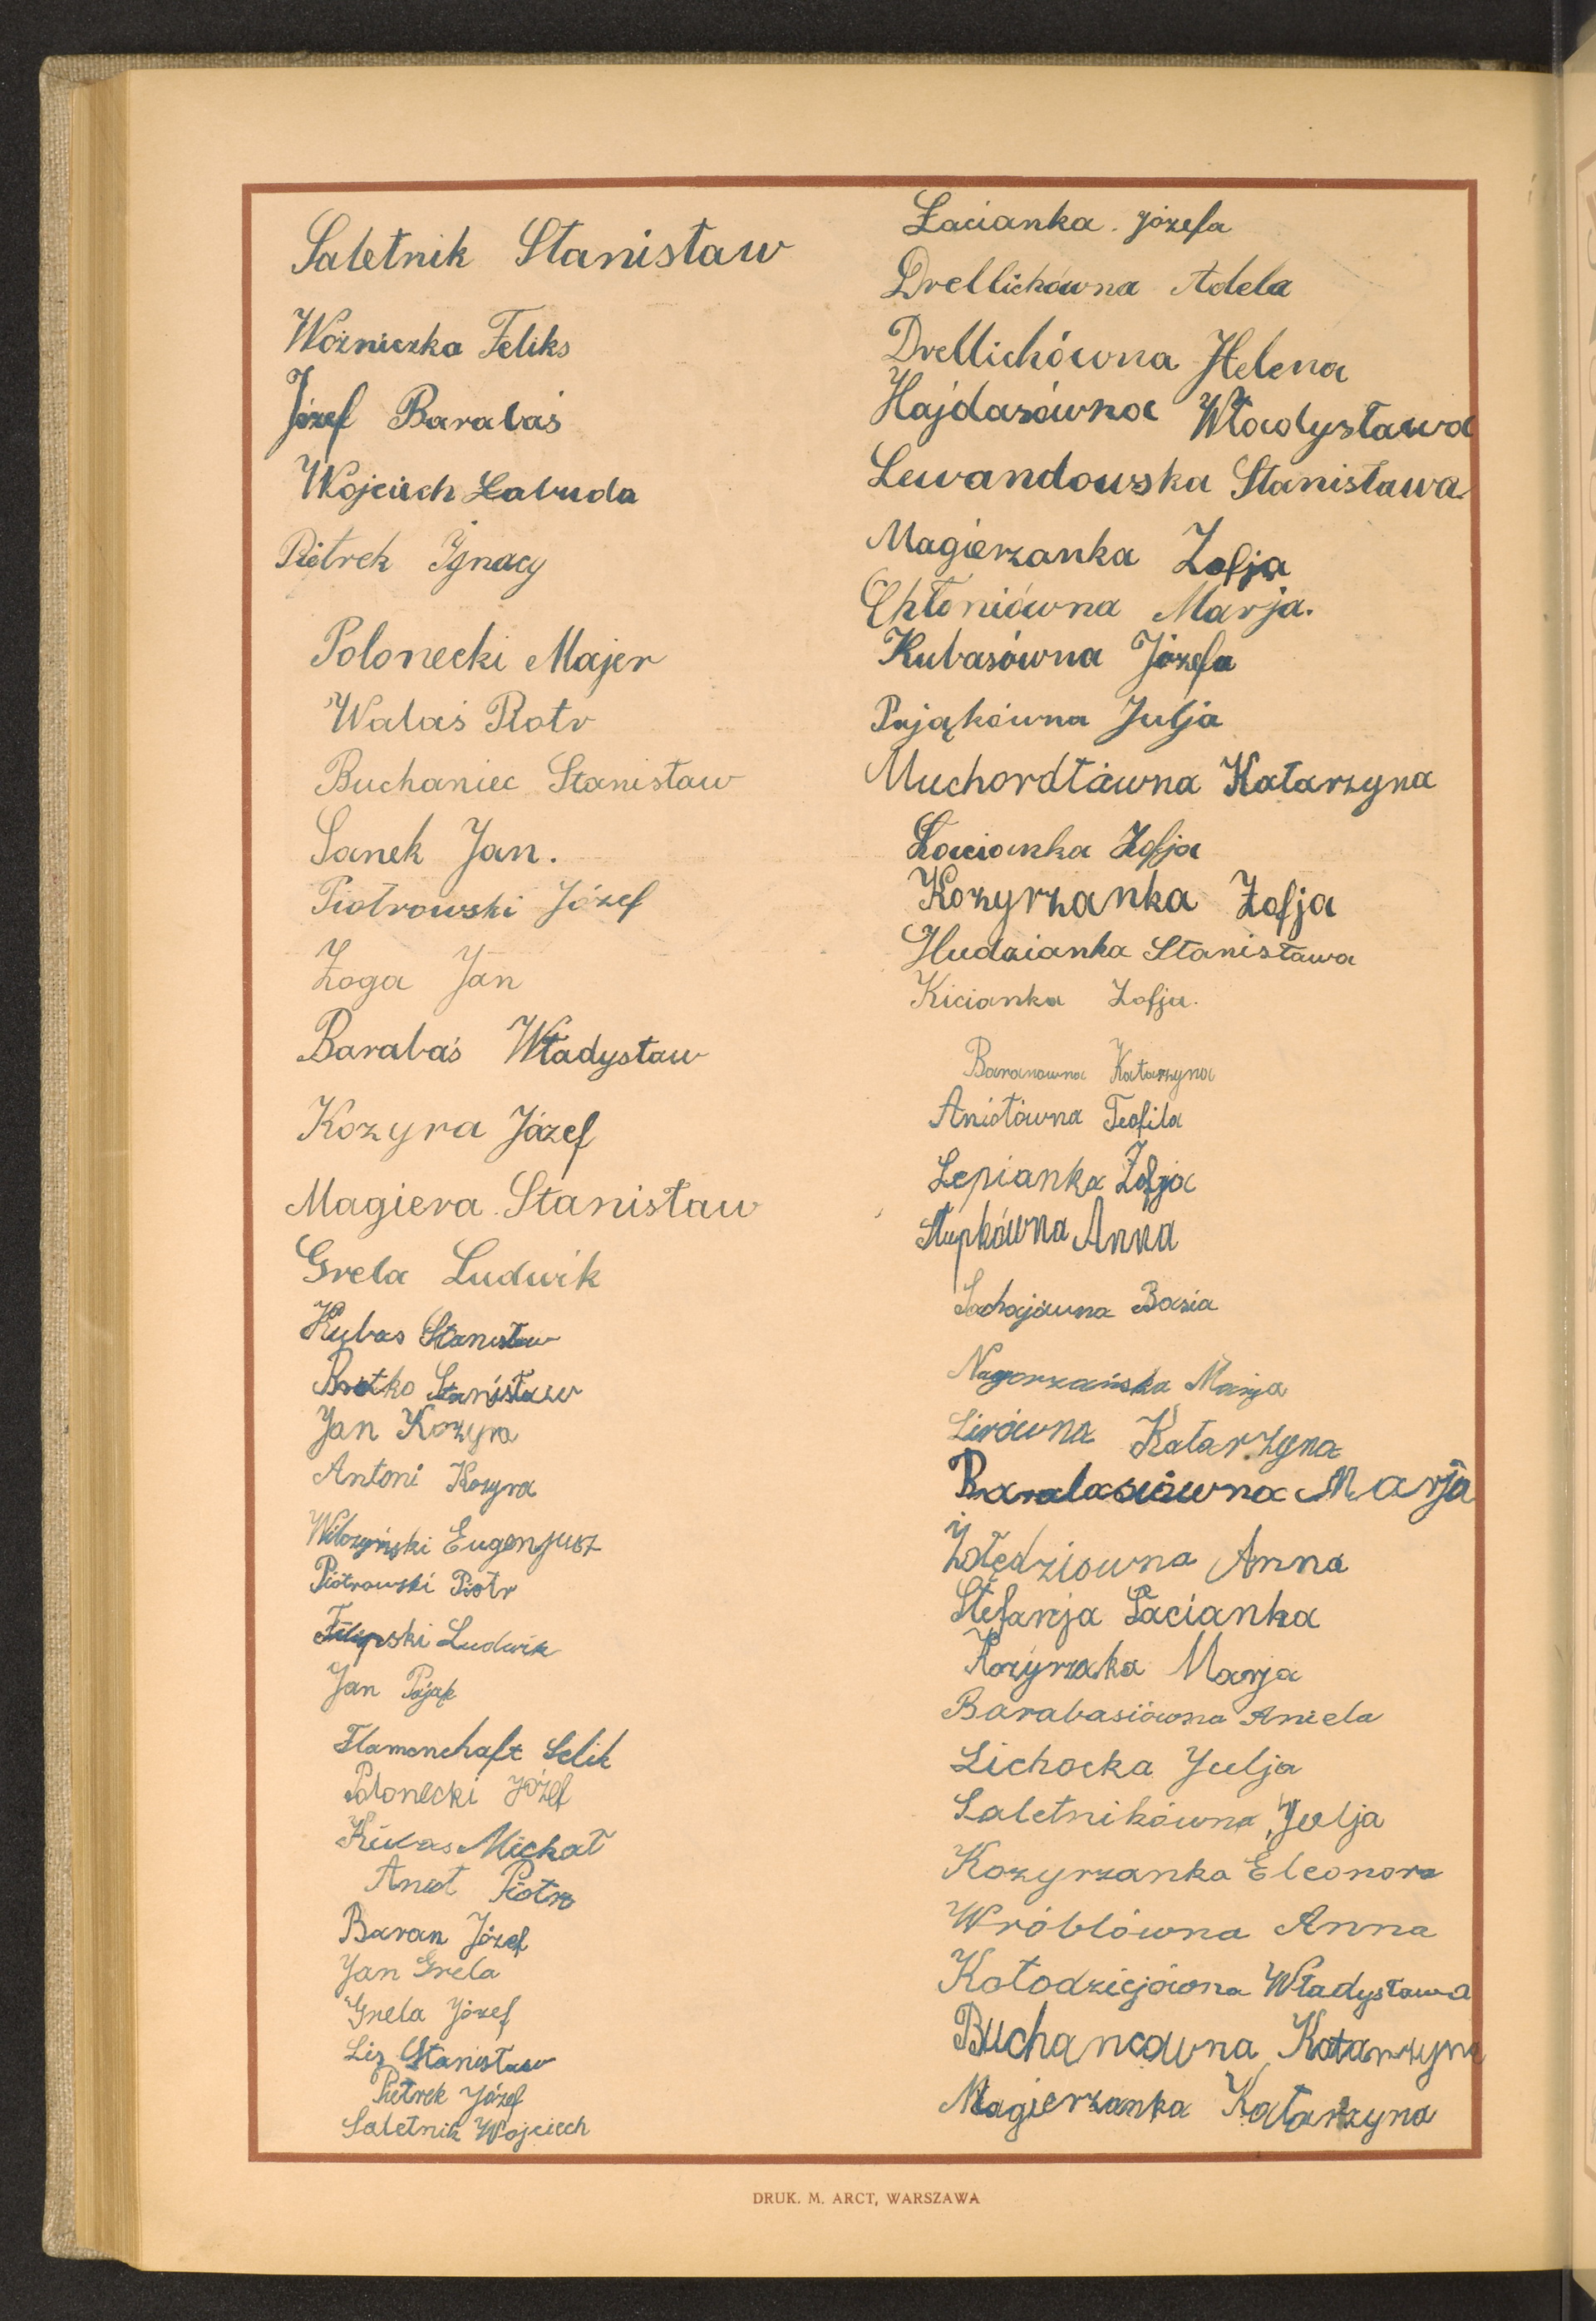 Saletnik Stanisław
Woźniczka Feliks
Józef Barabaś
Wojciech Łabuda
Pietrek Ignacy
Polonecki Majer
Walaś Piotr
Buchaniec Stanisław
Sanek Jan.
Piotrowski Józef
Łoga Jan
Barabaś Władysław
Kozyra Józef
Magiera Stanisław
Grela Ludwik
Kubas Stanisław
Brotko Stanisław
Jan Kozyra
Antoni Kozyra
Wilczyński Eugenjusz
Piotrowski Piotr
Filipski Ludwik
Jan Pająk
Flamenchaft Selik
Polonecki Józef
Kubas Michał
Anioł Piotr
Baran Józef
Jan Grela
Grela Józef
Lis Stanisław
Pietrek Józef
Saletnik Wojciech
Łacianka Józefa
Drellichówna Adela
Drellichówna Helena
Hajdasówna Władysława
Lewandowska Stanisława
Magierzanka Zofja
Chłoniówna Marja.
Kubasówna Józefa
Pająkówna Julja
Muchordtówna Katarzyna
Łacianka Zofja
Kozyrzanka Zofja
Hudzianka Stanisława
Kicianka Zofja.
Baranowna Katarzyna
Aniołówna Teofila
Lepianka Zofja
Słupkówna Anna
Sachajówna Basia
Nagorzańska Marja
Lisówna Katarzyna
Barabasiówna Marja
Żołędziowna Anna
Stefanja Łacianka
Kozyrzaka Marja
Barabasiówna Aniela
Lichocka Julja
Saletnikówna Julja
Kozyrzanka Eleonora
Wróblówna Anna
Kołodziejówna Władysława
Buchancówna Katarzyna
Magierzanka Katarzyna
DRUK. M. ARCT, WARSZAWA